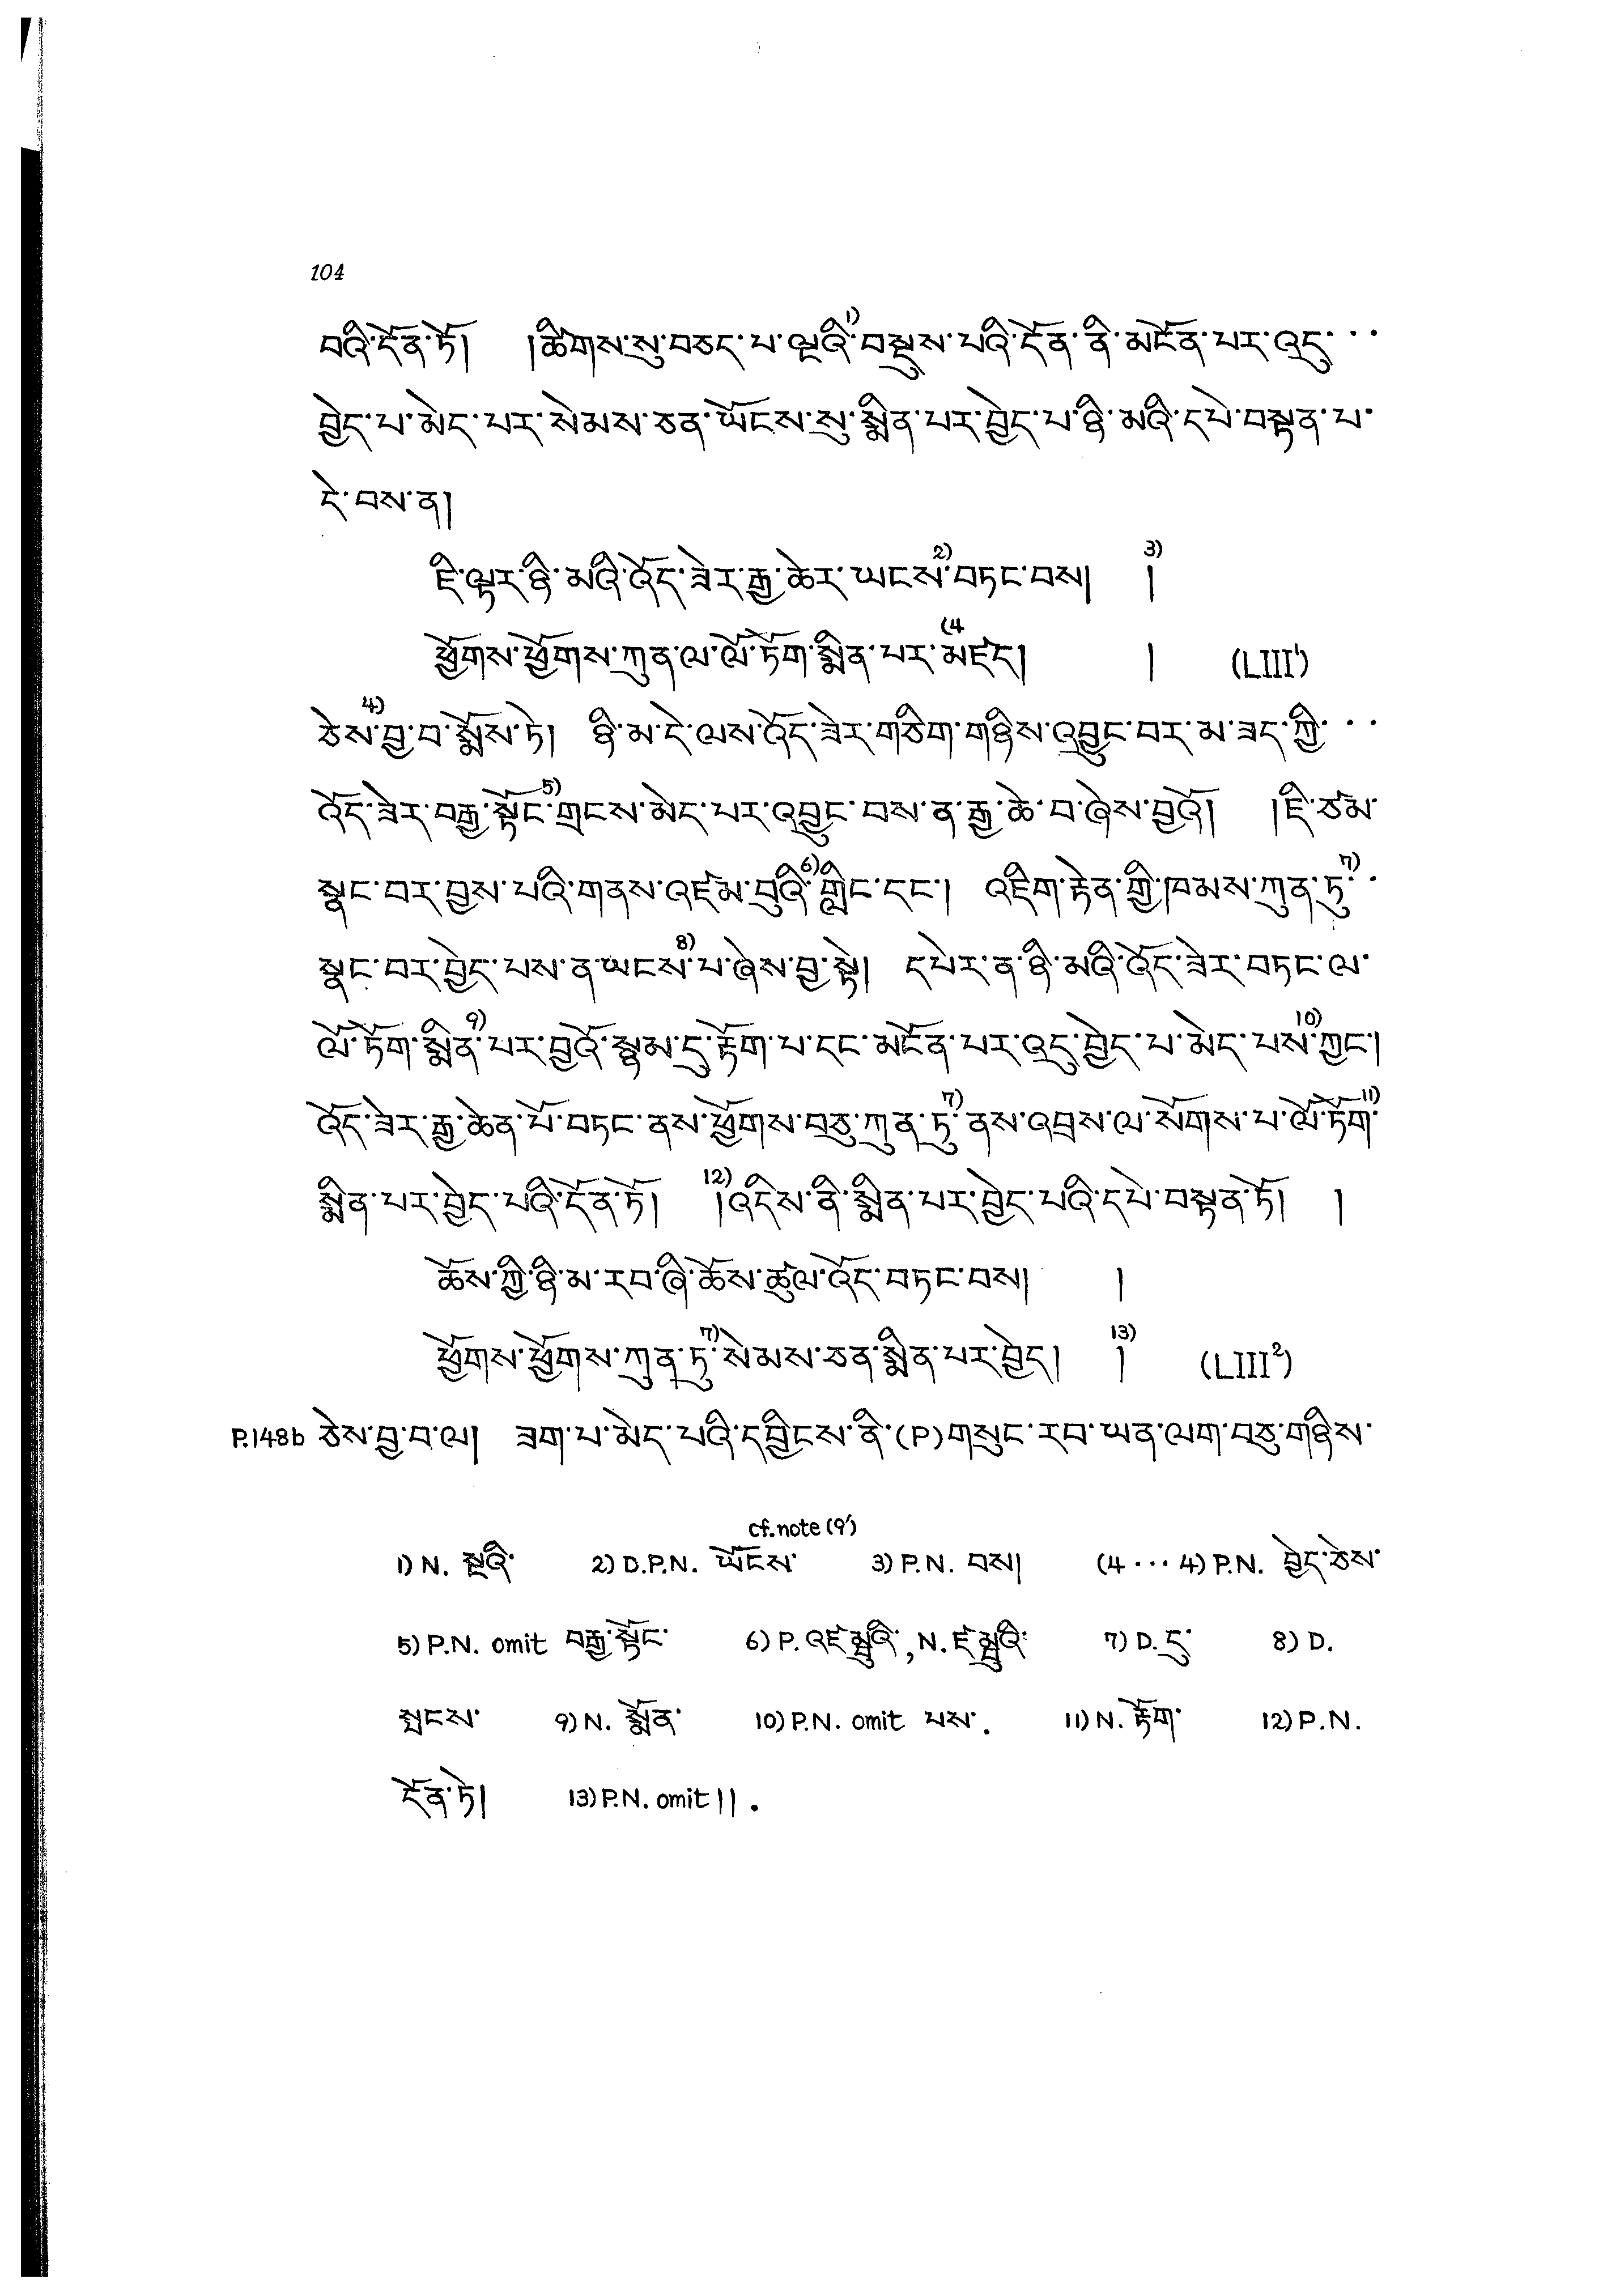 104
བའི་དོན་ཏོ། །ཚིགས་སུ་བཅད་པ་ལྔའི་¹⁾བསྡུས་པའི་དོན་ནི་མངོན་པར་འདུ་···
བྱེད་པ་མེད་པར་སེམས་ཅན་ཡོངས་སུ་སྨིན་པར་བྱེད་པ་ཉི་མའི་དཔེ་བསྟན་པ་
དེ་བས་ན།
ཇི་ལྟར་ཉི་མའི་འོད་ཟེར་རྒྱ་ཆེར་ཡངས་²⁾བཏང་བས། ³⁾།
ཕྱོགས་ཕྱོགས་ཀུན་ལ་ལོ་ཏོག་སྨིན་པར་⁽⁴མཛད། ། (LIII¹)
ཅེས་⁴⁾བྱ་བ་སྨོས་ཏེ། ཉི་མ་དེ་ལས་འོད་ཟེར་གཅིག་གཉིས་འབྱུང་བར་མ་ཟད་ཀྱི་···
འོད་ཟེར་བརྒྱ་སྟོང་⁵⁾གྲངས་མེད་པར་འབྱུང་བས་ན་རྒྱ་ཆེ་བ་ཞེས་བྱའོ། །ཇི་ཙམ་
སྣང་བར་བྱས་པའི་གནས་འཛམ་བུའི་⁶⁾གླིང་དང་། འཇིག་རྟེན་གྱི་ཁམས་ཀུན་ཏུ་⁷⁾··
སྣང་བར་བྱེད་པས་ན་ཡངས་⁸⁾པ་ཞེས་བྱ་སྟེ། དཔེར་ན་ཉི་མའི་འོད་ཟེར་བཏང་ལ་
ལོ་ཏོག་སྨིན་⁹⁾པར་བྱའོ་སྙམ་དུ་རྟོག་པ་དང་མངོན་པར་འདུ་བྱེད་པ་མེད་པས་¹⁰⁾ཀྱང་།
འོད་ཟེར་རྒྱ་ཆེན་པོ་བཏང་ནས་ཕྱོགས་བཅུ་ཀུན་ཏུ་⁷⁾ནས་འབྲས་ལ་སོགས་པ་ལོ་ཏོག་¹¹⁾
སྨིན་པར་བྱེད་པའི་དོན་ཏོ། ¹²⁾།འདིས་ནི་སྨིན་པར་བྱེད་པའི་དཔེ་བསྟན་ཏོ། །
ཆོས་ཀྱི་ཉི་མ་རབ་ཞི་ཆོས་ཚུལ་འོད་བཏང་བས། །
ཕྱོགས་ཕྱོགས་ཀུན་ཏུ་⁷⁾སེམས་ཅན་སྨིན་པར་བྱེད། ¹³⁾། (LIII²)
P.148b ཅེས་བྱ་བ་ལ། ཟག་པ་མེད་པའི་དབྱིངས་ནི་(P)གསུང་རབ་ཡན་ལག་བཅུ་གཉིས་
cf.note(9')
1) N. སྔའི་ 2) D.P.N. ཡོངས་ 3) P.N. བས། (4 ··· 4) P.N. བྱེད་ཅེས་
5) P.N. omit བརྒྱ་སྟོང་ 6) P. འཛམྦུའི་, N. ཛམྦུའི་ 7) D. དུ་ 8) D.
སྤངས་ 9) N. སྨོན་ 10) P.N. omit པས་. 11) N. རྟོག་ 12) P.N.
དོན་ཏེ། 13) P.N. omit །།.